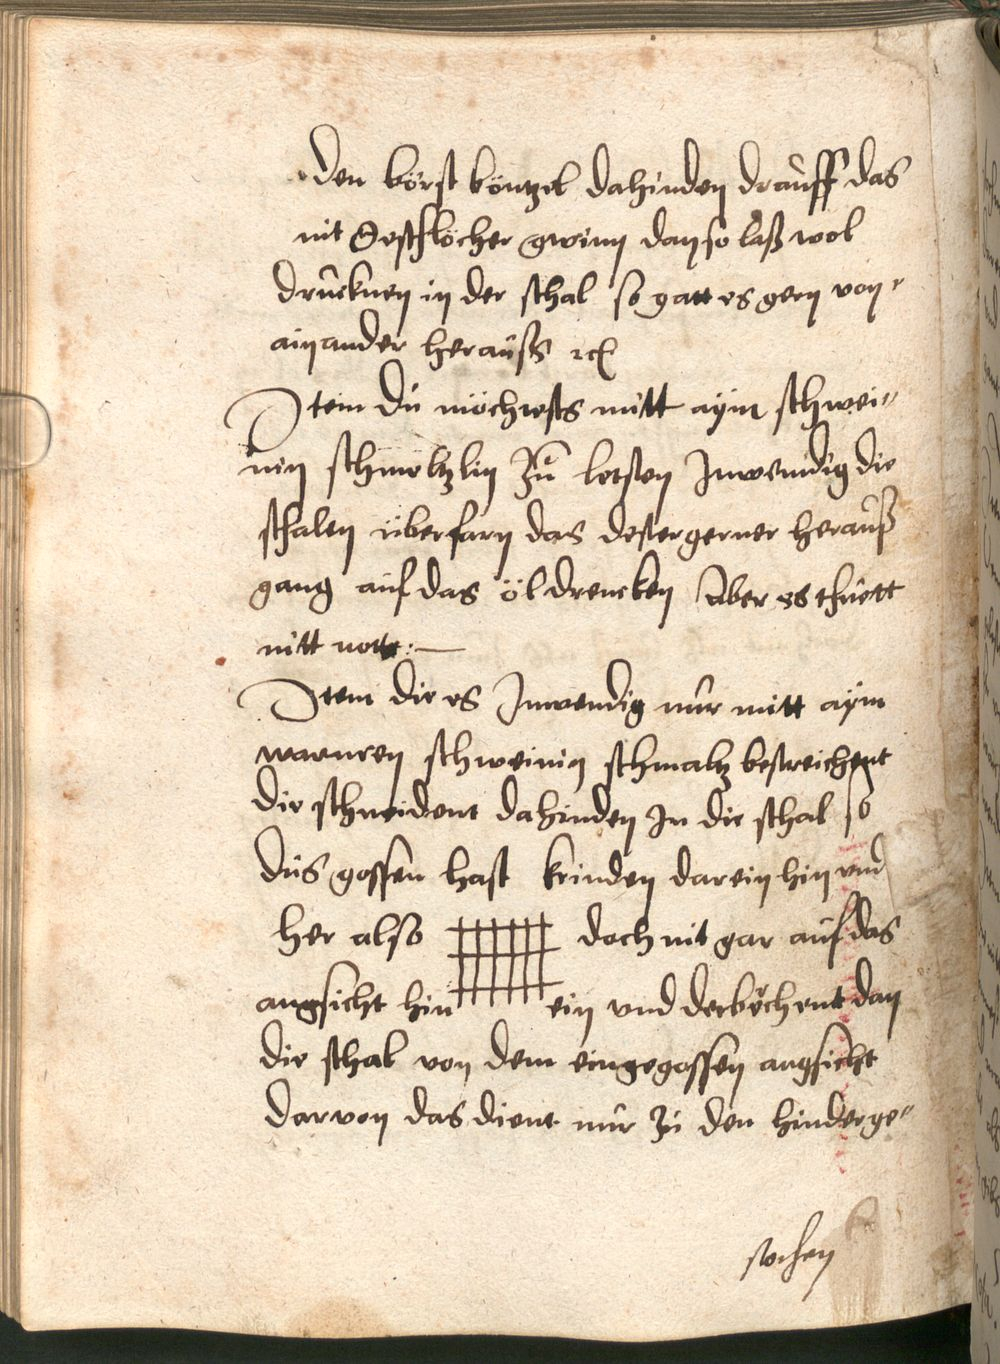 den börst böntzel dahinden drauff das
nit Gostflöcher gwinn dan so laß wol
drucknen in der schal so gatt es gern von
ainander herauss
Item du möchtests mitt aÿm schwei„
nin schmöltzlin zu letsten Inwendig die
schalen überfarn das dester gerner herauß
gang auf das öl drencken Aber es thuett
nitt nott:
Item die es Inwendig nur mitt aÿm
warmen schweinin schmaltz bestreichent
die schneident dahinden In die schal so
dus gossen hast krinden darein hin vnd
her also doch nit gar auf das
angsicht hin ein vnd derböchent dan
die schal von dem eingegossen angsicht
darvon das dient nur zu den hinderge„